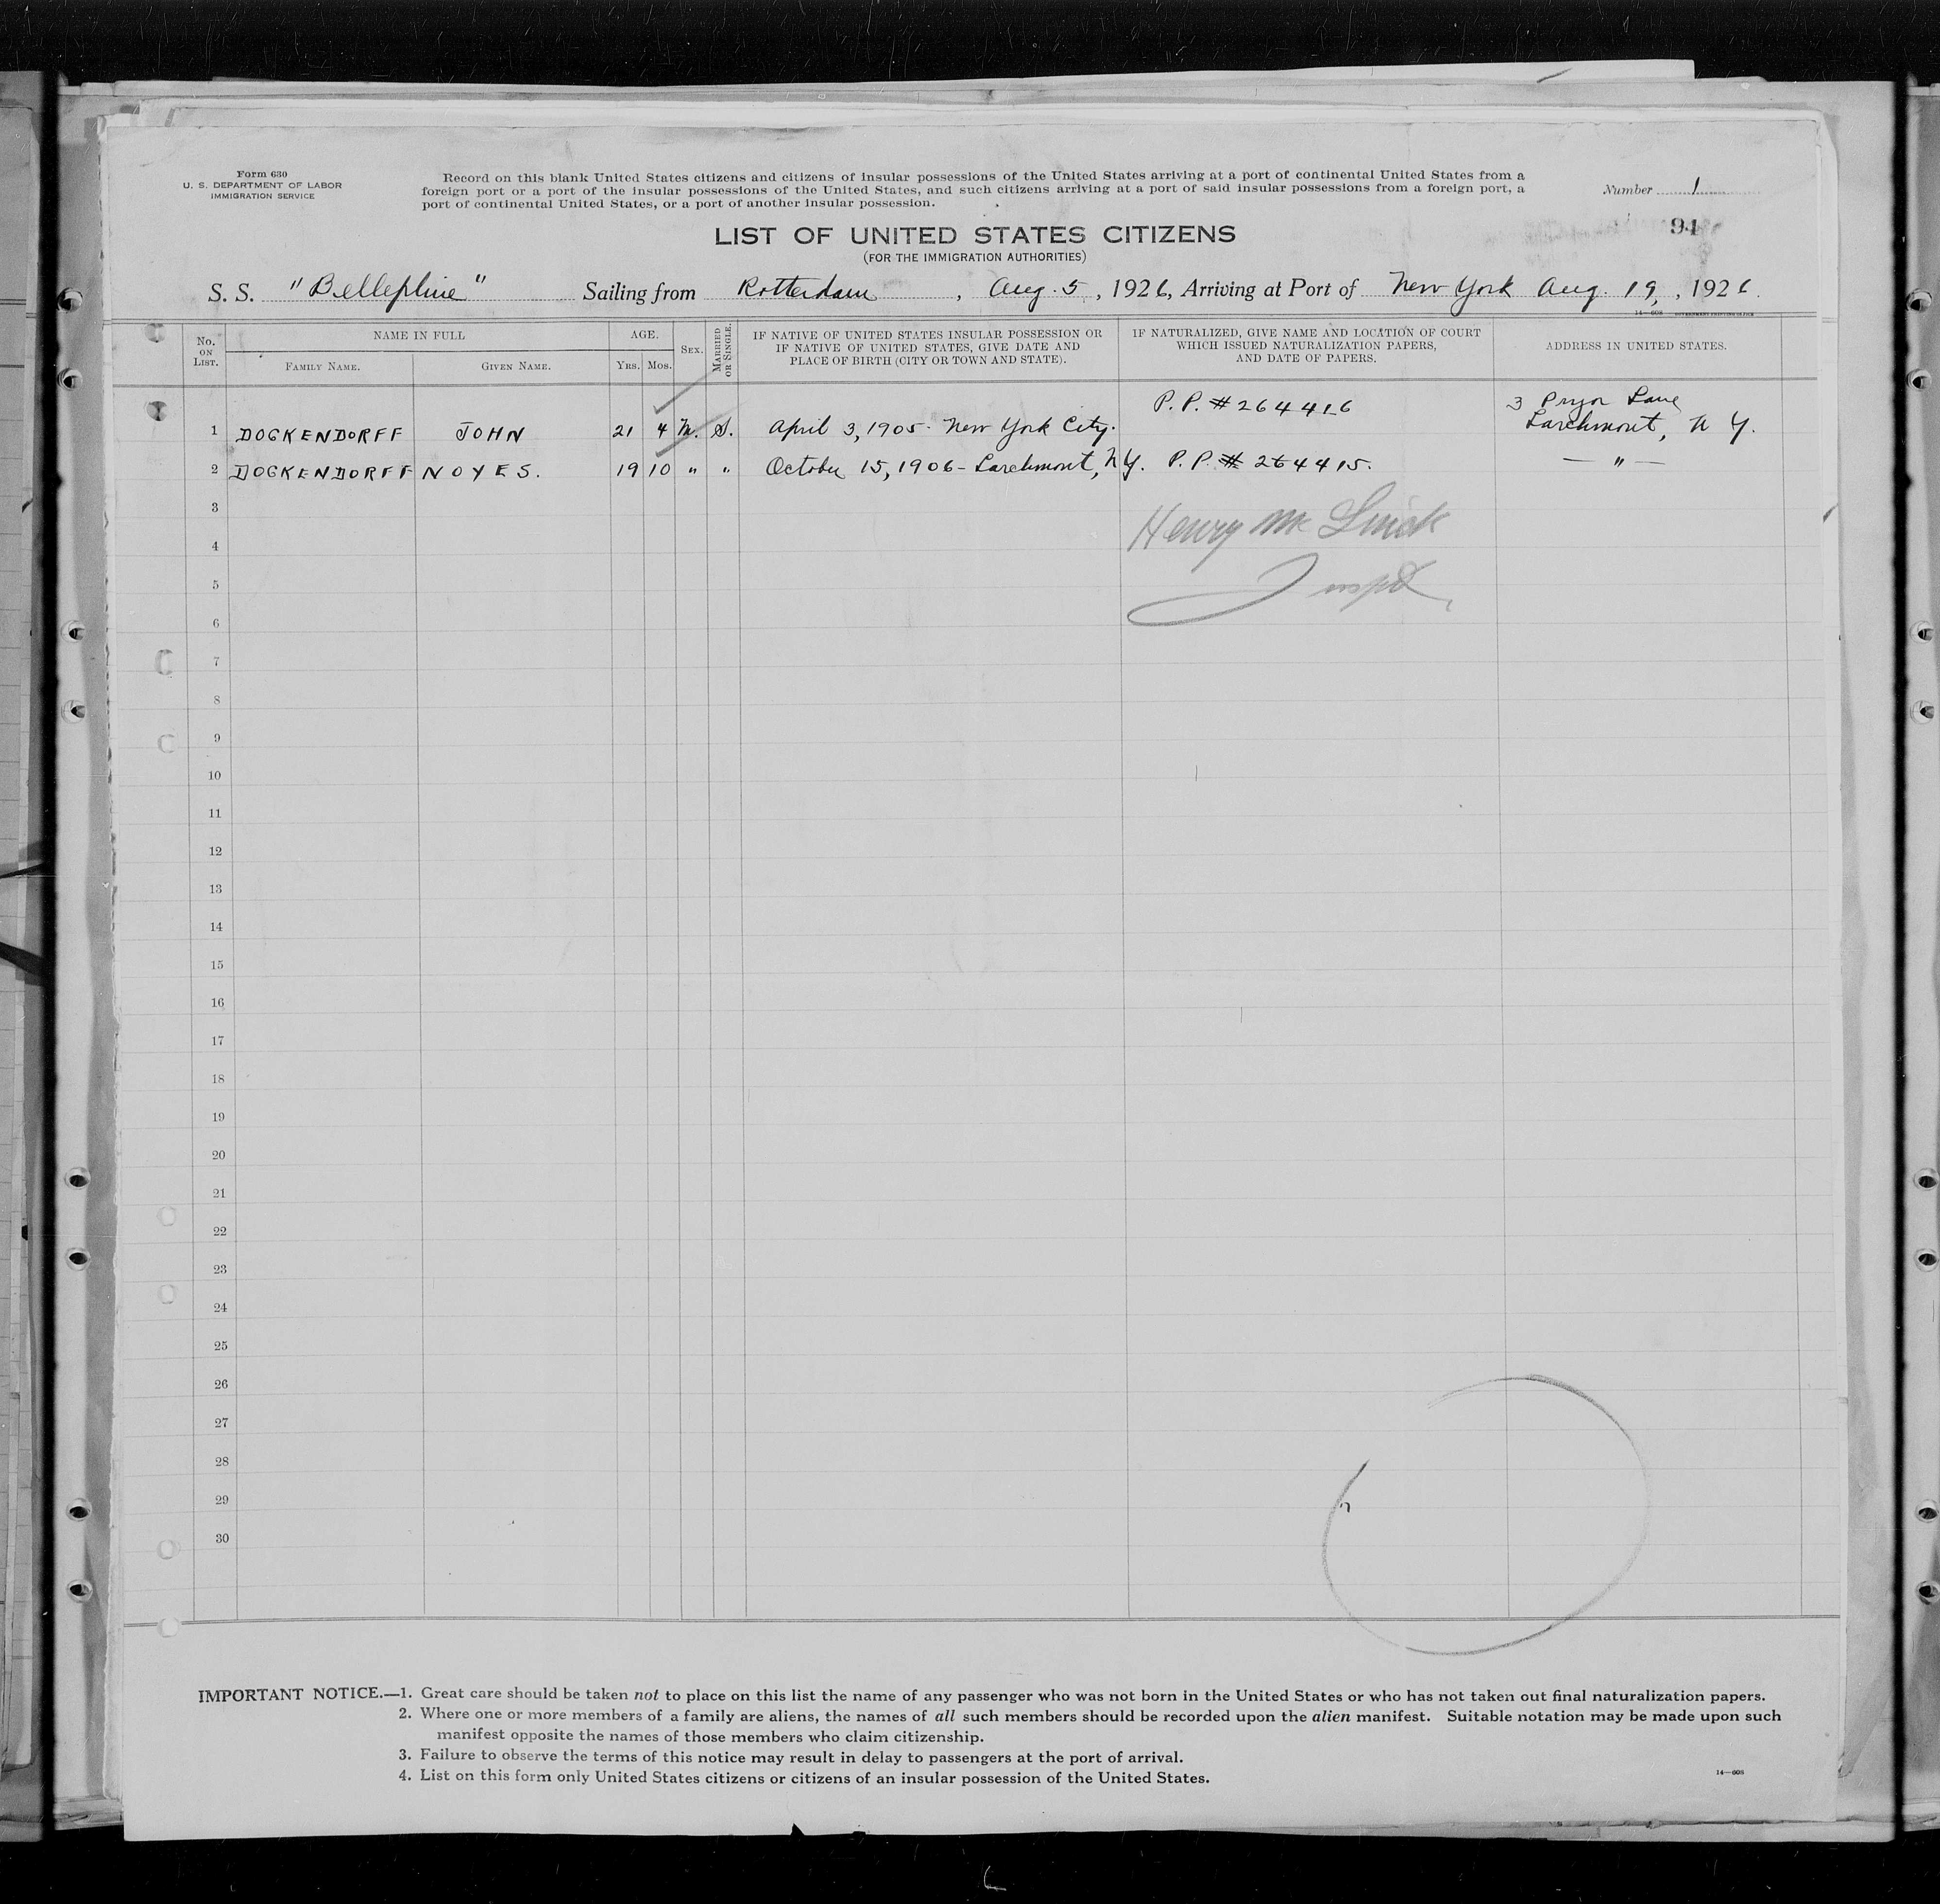 Form 630
U. S. DEPARTMENT OF LABOR
IMMIGRATION SERVICE
Record on this blank United States citizens and citizens of insular possessions of the United States arriving at a port of continental United States from a
foreign port or a port of the insular possessions of the United States, and such citizens arriving at a port of said insular possessions from a foreign port, a
port of continental United States, or a port of another insular possession.
Number 1
94
LIST OF UNITED STATES CITIZENS
(FOR THE IMMIGRATION AUTHORITIES)
S. S. "Bellepline" Sailing from Rotterdam, Aug. 5, 1926, Arriving at Port of New York Aug. 19, 1926
14—608 GOVERNMENT PRINTING OFFICE
No. ON LIST.
NAME IN FULL
FAMILY NAME.
GIVEN NAME.
AGE.
YRS. MOS.
SEX.
MARRIED OR SINGLE.
IF NATIVE OF UNITED STATES INSULAR POSSESSION OR
IF NATIVE OF UNITED STATES, GIVE DATE AND
PLACE OF BIRTH (CITY OR TOWN AND STATE).
IF NATURALIZED, GIVE NAME AND LOCATION OF COURT
WHICH ISSUED NATURALIZATION PAPERS,
AND DATE OF PAPERS.
ADDRESS IN UNITED STATES.
1 DOCKENDORFF JOHN 21 4 M. S. April 3, 1905. New York City. P. P. # 264416 3 Pryor Lane
Larchmont, N Y.
2 DOCKENDORFF NOYES. 19 10 " " October 15, 1906 - Larchmont, N Y. P. P. # 264415. — " —
3
Henry Mc
4
5
6
7
8
9
10
11
12
13
14
15
16
17
18
19
20
21
22
23
24
25
26
27
28
29
30
IMPORTANT NOTICE.—1. Great care should be taken not to place on this list the name of any passenger who was not born in the United States or who has not taken out final naturalization papers.
2. Where one or more members of a family are aliens, the names of all such members should be recorded upon the alien manifest. Suitable notation may be made upon such
manifest opposite the names of those members who claim citizenship.
3. Failure to observe the terms of this notice may result in delay to passengers at the port of arrival.
4. List on this form only United States citizens or citizens of an insular possession of the United States.
14—608